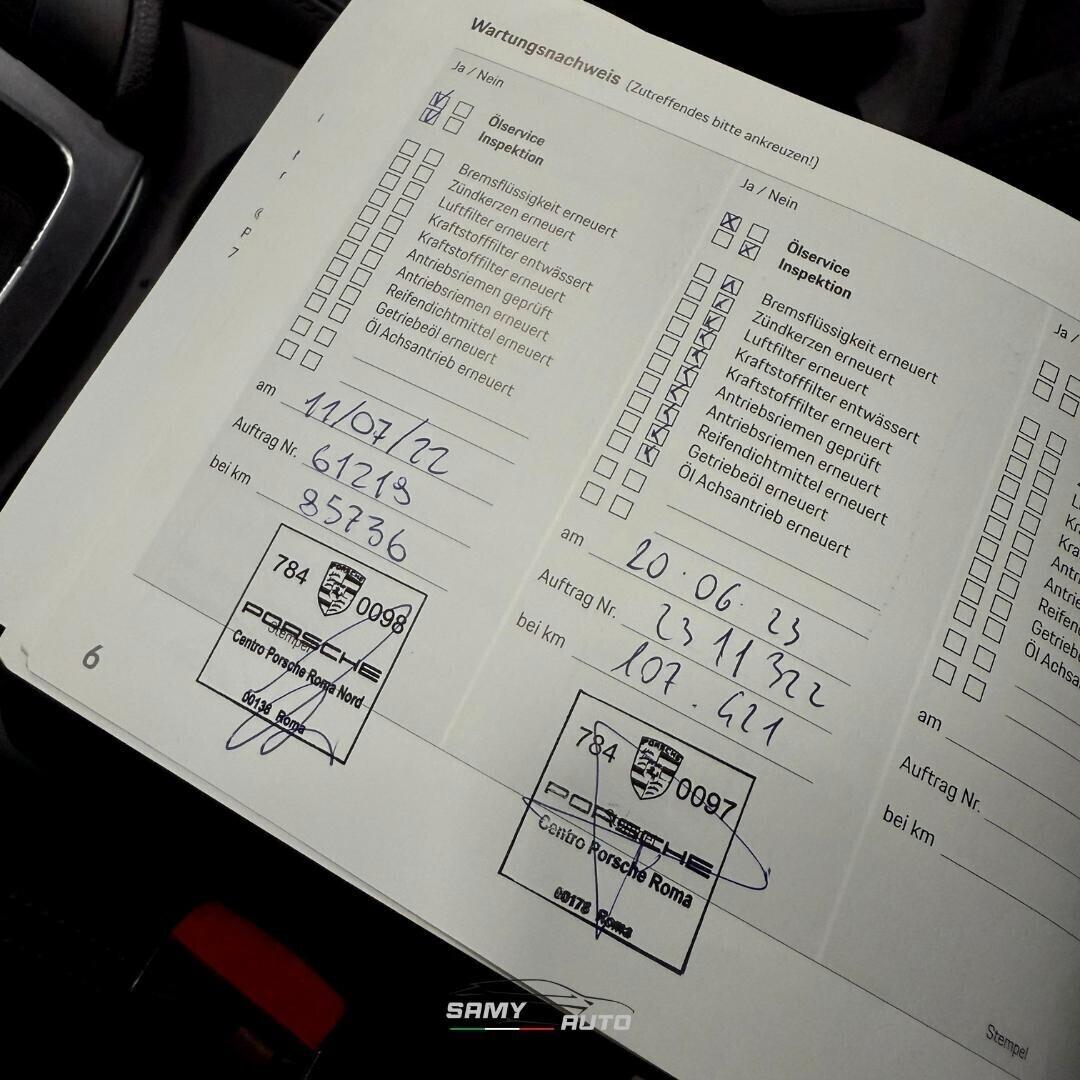 Wartungsnachweis (Zutreffendes bitte ankreuzen!)
Ja / Nein
Ölservice
Inspektion
Bremsflüssigkeit erneuert
Zündkerzen erneuert
Luftfilter erneuert
Kraftstofffilter entwässert
Kraftstofffilter erneuert
Antriebsriemen geprüft
Antriebsriemen erneuert
Reifendichtmittel erneuert
Getriebeöl erneuert
Öl Achsantrieb erneuert
am 11/07/22
Auftrag Nr. 61219
bei km 85736
784 0098
PORSCHE
Stempel
Centro Porsche Roma Nord
00138 Roma
6
Ja / Nein
Ölservice
Inspektion
Bremsflüssigkeit erneuert
Zündkerzen erneuert
Luftfilter erneuert
Kraftstofffilter entwässert
Kraftstofffilter erneuert
Antriebsriemen geprüft
Antriebsriemen erneuert
Reifendichtmittel erneuert
Getriebeöl erneuert
Öl Achsantrieb erneuert
am 20.06.23
Auftrag Nr. 2311322
bei km 107.421
784 0097
PORSCHE
Centro Porsche Roma
00178 Roma
Ja /
Kra
Antri
Antrie
Reifen
Getrieb
Öl Achsa
am
Auftrag Nr.
bei km
Stempel
SAMY AUTO